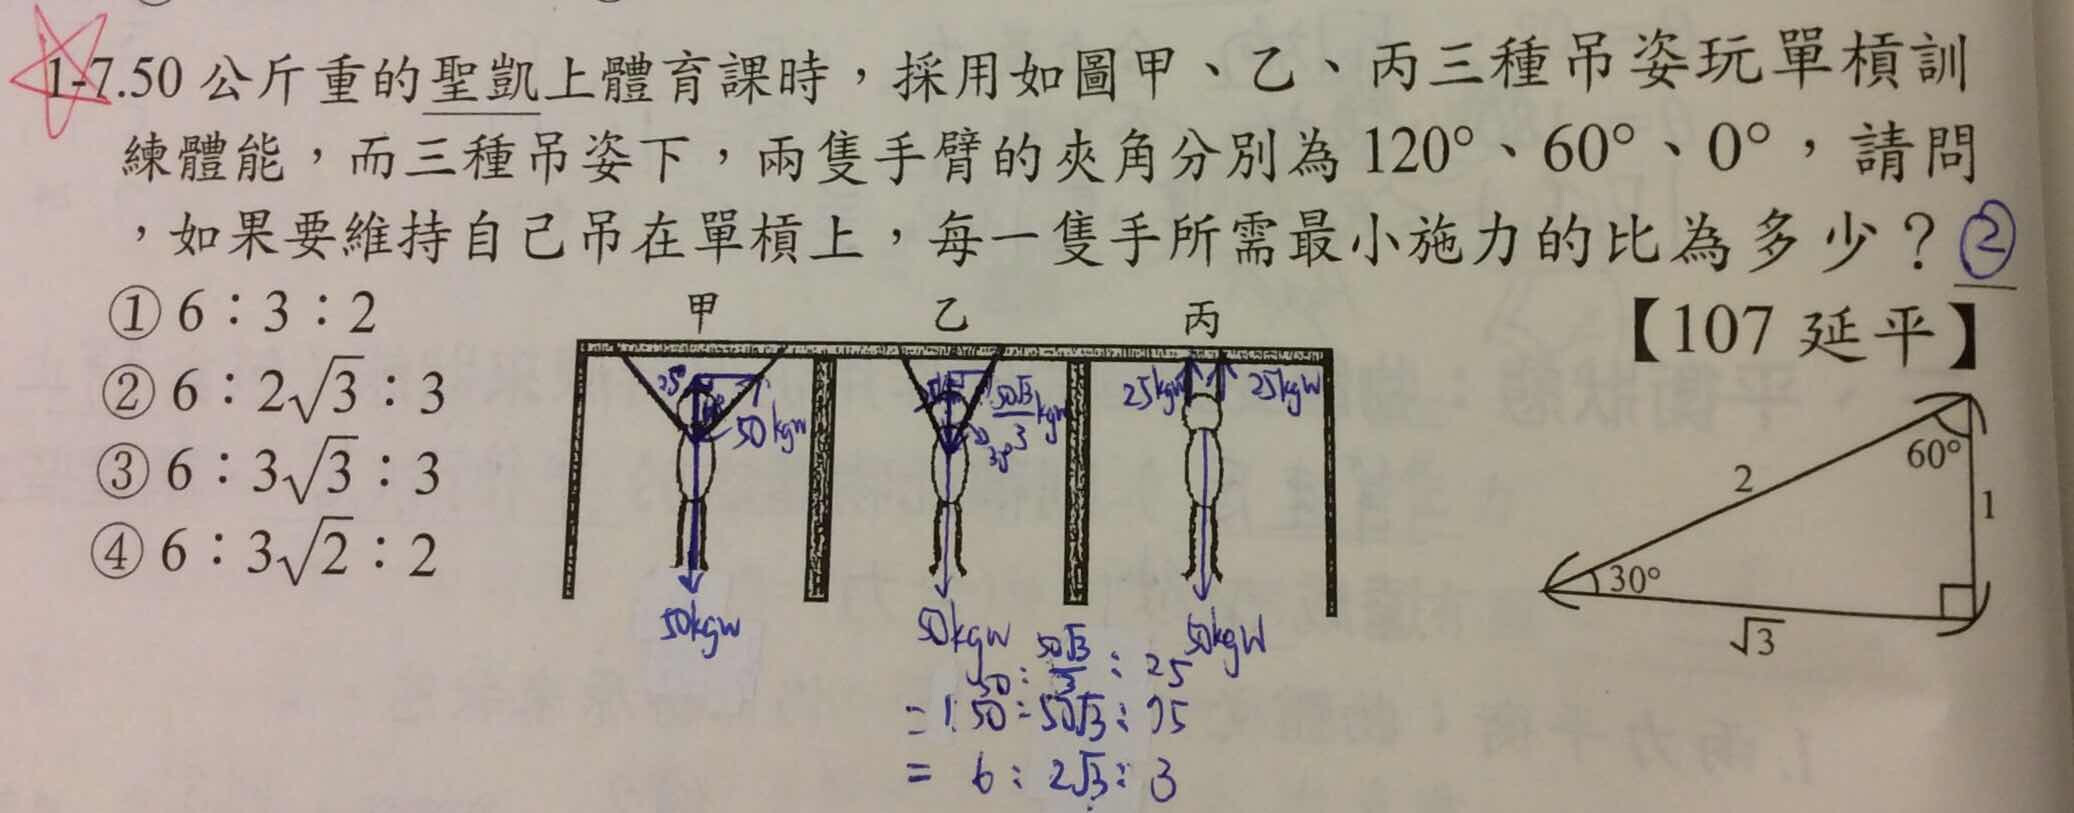 1-7.50 公斤重的聖凱上體育課時，採用如圖甲、乙、丙三種吊姿玩單槓訓
練體能，而三種吊姿下，兩隻手臂的夾角分別為 120°、60°、0°，請問
，如果要維持自己吊在單槓上，每一隻手所需最小施力的比為多少？②
【107 延平】
① 6：3：2
② 6：2√3：3
③ 6：3√3：3
④ 6：3√2：2
甲 乙 丙
25 50kgw
50√3/3 kgw
25kgw 25kgw
30°
50kgw 50kgw 50kgw
2 60° 1
30°
√3
50：50√3/3：25
=150：50√3：75
= 6：2√3：3